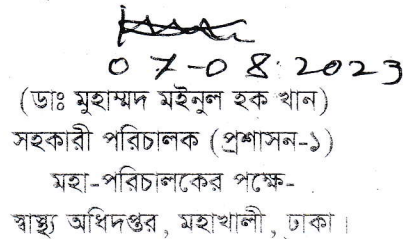 07-08-2023
(ডাঃ মুহাম্মদ মইনুল হক খান)
সহকারী পরিচালক (প্রশাসন-১)
মহা-পরিচালকের পক্ষে-
স্বাস্থ্য অধিদপ্তর, মহাখালী, ঢাকা।